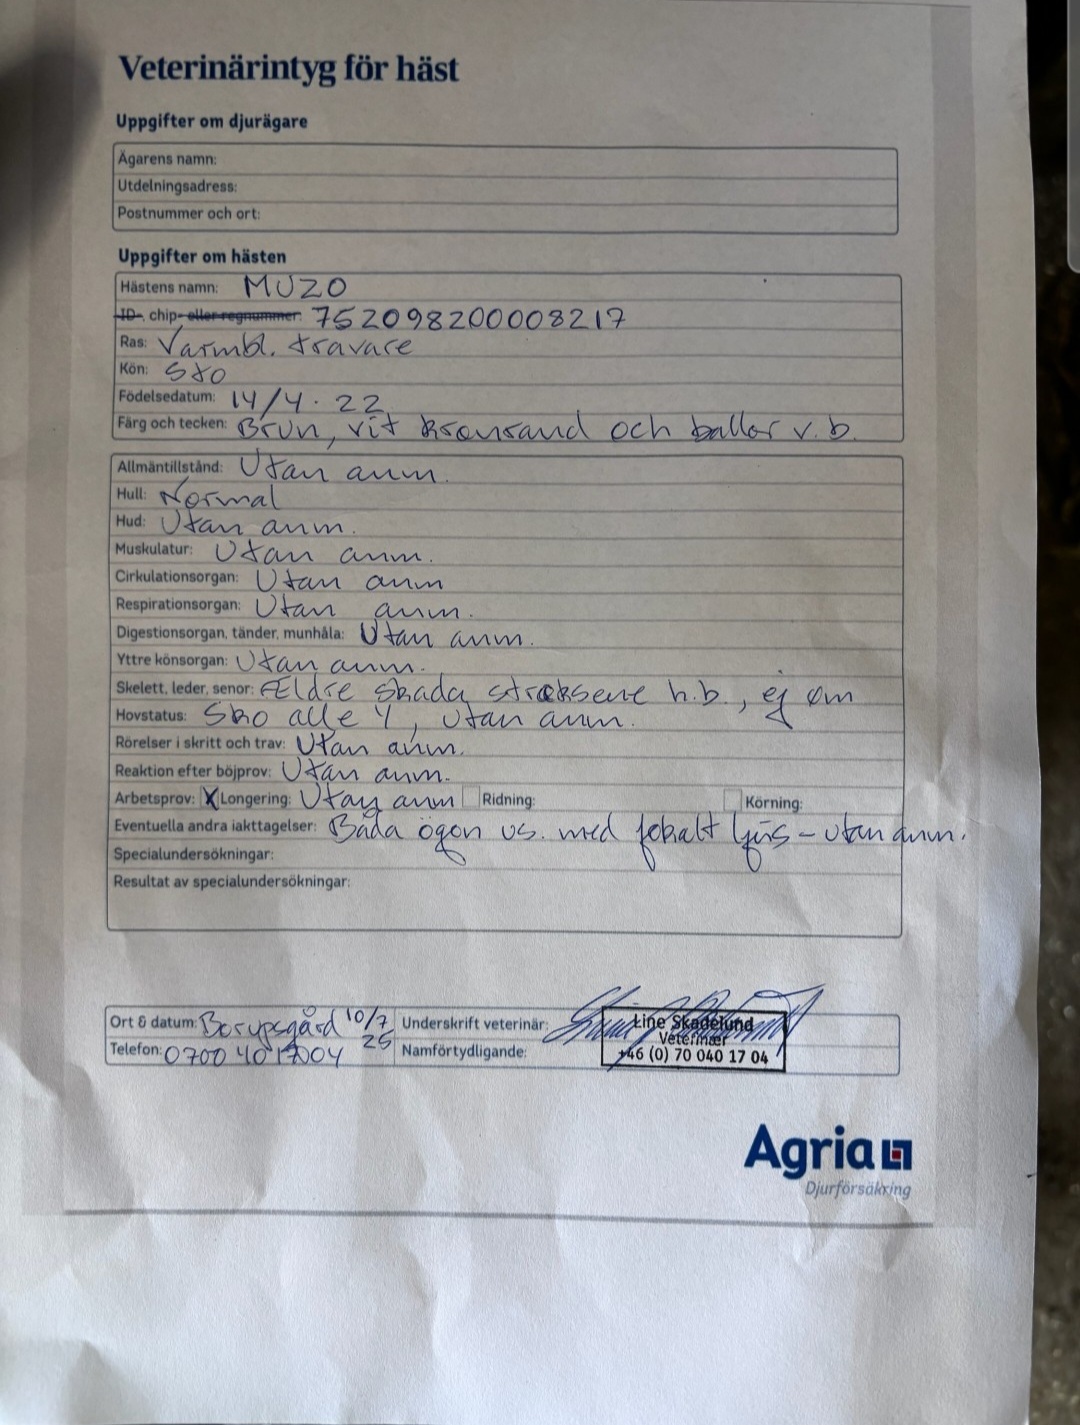 Veterinärintyg för häst
Uppgifter om djurägare
Ägarens namn:
Utdelningsadress:
Postnummer och ort:
Uppgifter om hästen
Hästens namn: MUZO
ID-, chip- eller regnummer: 752098200008217
Ras: Varmbl. travare
Kön: Sto
Födelsedatum: 14/4. 22
Färg och tecken: Brun, vit kronrand och ballar v.b.
Allmäntillstånd: Utan anm.
Hull: Normal
Hud: Utan anm.
Muskulatur: Utan anm.
Cirkulationsorgan: Utan anm
Respirationsorgan: Utan anm.
Digestionsorgan, tänder, munhåla: Utan anm.
Yttre könsorgan: Utan anm.
Skelett, leder, senor: Ældre skada stræksene h.b., ej öm
Hovstatus: Sko alle 4, utan anm.
Rörelser i skritt och trav: Utan anm.
Reaktion efter böjprov: Utan anm.
Arbetsprov: X Longering: Utan anm Ridning: Körning:
Eventuella andra iakttagelser: Båda ögon us. med fokalt ljus - utan anm.
Specialundersökningar:
Resultat av specialundersökningar:
Ort & datum: Borupsgård 10/7 25 Underskrift veterinär:
Telefon: 0700 401704 Namförtydligande:
Line Skadelund
Veterinær
+46 (0) 70 040 17 04
Agria
Djurförsäkring